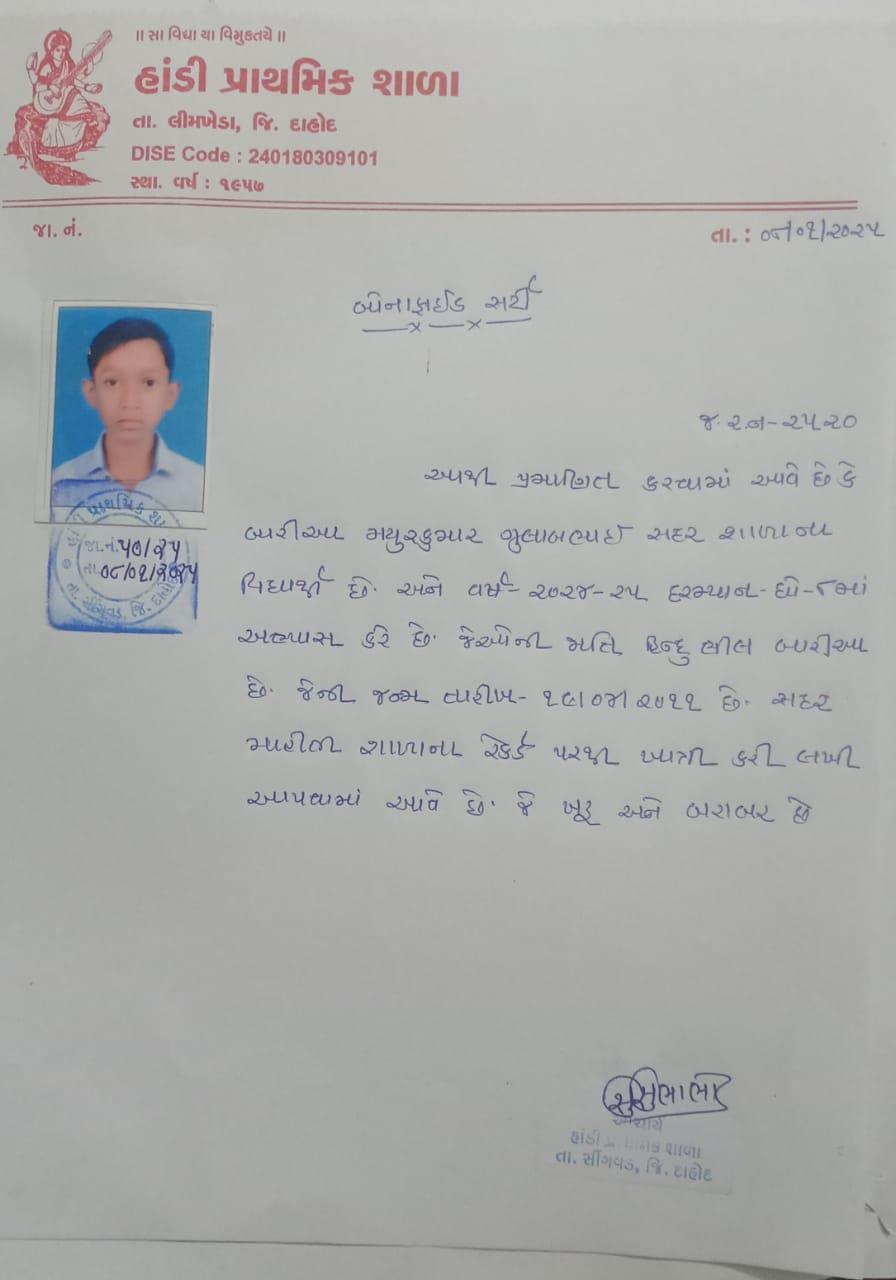 ॥ સા વિદ્યા યા વિમુકતયે ॥
હાંડી પ્રાથમિક શાળા
તા. લીમખેડા, જિ. દાહોદ
DISE Code : 240180309101
સ્થા. વર્ષ : ૧૯૫૭
જા. નં.
તા. : ૦૮/૦૧/૨૦૨૫
બોનાફાઈડ સર્ટી
જ.ર.નં-૨૫૨૦
આથી પ્રમાણિત કરવામાં આવે છે કે
બારીઆ મયુરકુમાર ગુલાબભાઇ સદર શાળાના
વિદ્યાર્થી છે. અને વર્ષ-૨૦૨૪-૨૫ દરમ્યાન-ધો-૮માં
અભ્યાસ કરે છે. જેઓની જાતિ હિન્દુ ભીલ બારીઆ
છે. જેની જન્મ તારીખ- ૦૪/૨૦૧૧ છે. સદર
માહીતી શાળાના રેકર્ડ પરથી ખાત્રી કરી લખી
આપવામાં આવે છે. જે ખરૂ અને બરાબર છે
પ્રાથમિક શા
જા.નં. ૫૦/૨૫
તા. ૦૮/૦૧/૨૦૨૫
તા. સીંગવડ, જિ. દાહો
આચાર્ય
હાંડી પ્રાથમિક શાળા
તા. સીંગવડ, જિ. દાહોદ